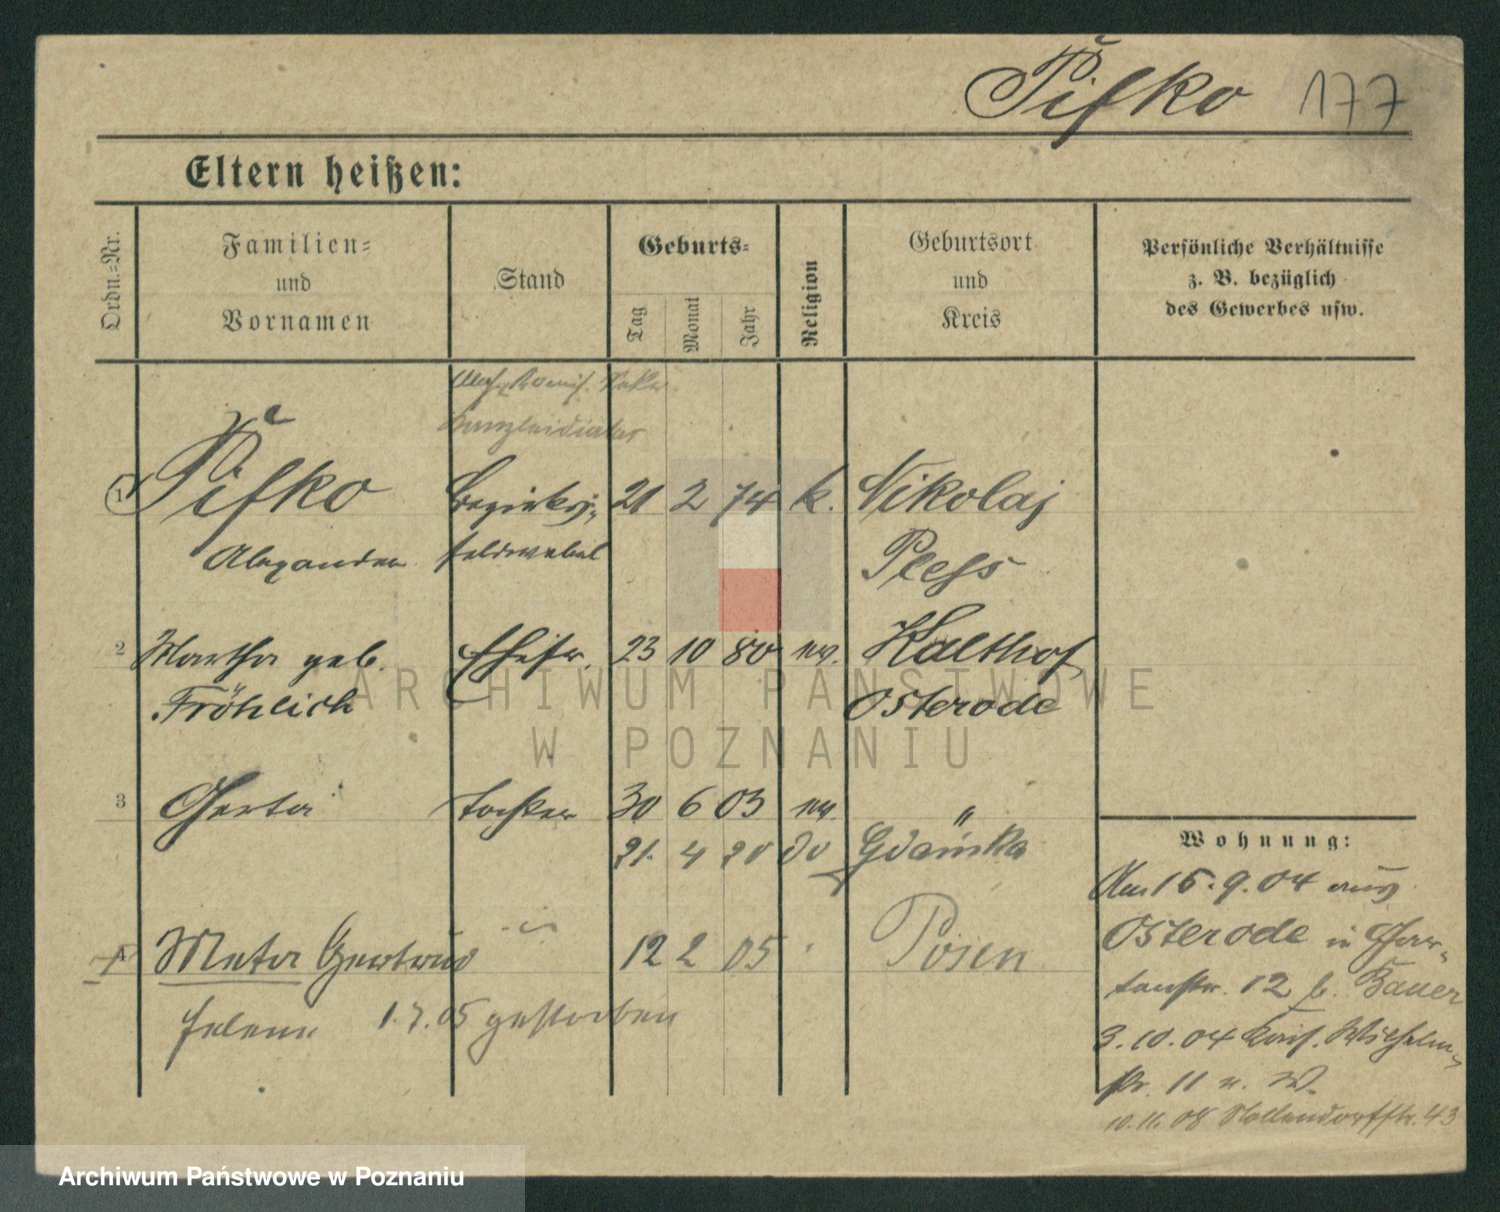 Pifko 177
Eltern heißen:
Ordn.=Nr.
Familien=
und
Vornamen
Stand
Geburts=
Tag
Monat
Jahr
Religion
Geburtsort
und
Kreis
Persönliche Verhältnisse
z. B. bezüglich
des Gewerbes usw.
Kanzleidiätar
1 Pifko Bezirks= 21 2 74 k. Nikolaj
Alexander feldwebel Pless
2 Martha geb. Ehefr. 23 10 80 ev. Kalthof
Fröhlich Osterode
3 Herta Tochter 30 6 03 ev. "
21. 4 20 do Gdańska
Wohnung:
Am 15.9.04 aus
Osterode in Gar=
tenstr. 12 b. Bauer
4 Meta Gertrud 12 2 05 Posen
Helene 1.7.05 gestorben
3.10.04 Kais. Wilhelm
str. 11 u. W.
10.11.08 Nollendorfstr. 43
ARCHIWUM PAŃSTWOWE
W POZNANIU
Archiwum Państwowe w Poznaniu